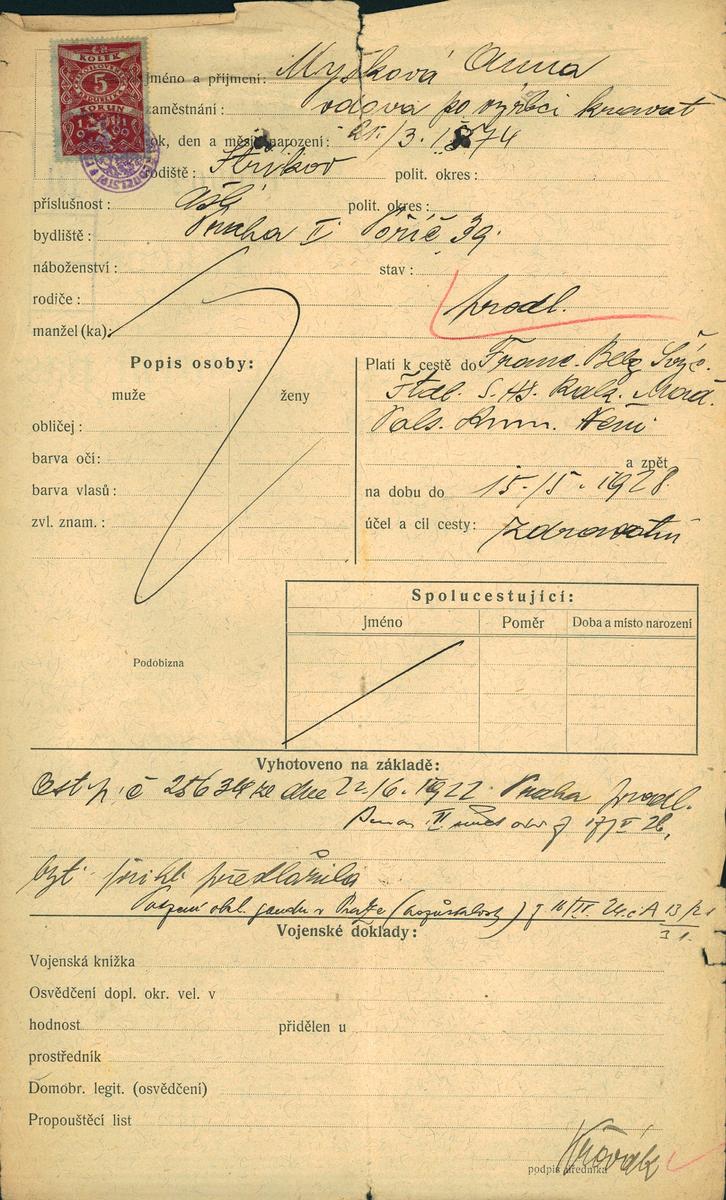 KOLEK
5
KORUN
jméno a příjmení: Myšková Anna
zaměstnání: vdova po výrobci kravat
rok, den a měsíc narození: 21./3. 1874
rodiště: polit. okres:
příslušnost: polit. okres:
bydliště: Praha II Poříč 39.
náboženství: stav:
rodiče: prodl.
manžel (ka):
Popis osoby:
muže ženy
obličej:
barva očí:
barva vlasů:
zvl. znam.:
Platí k cestě do Franc. Belg. Švýc.
Itál. S.H.S. Rak. Maď.
Pols. Něm.
a zpět
na dobu do 15./5. 1928
účel a cíl cesty: zdravotní
Spolucestující:
Jméno Poměr Doba a místo narození
Podobizna
Vyhotoveno na základě:
cest. p. č 25634 ze dne 22/6. 1922 Praha prodl.
byt. přihl. předložila
v Praze
Vojenské doklady:
Vojenská knížka
Osvědčení dopl. okr. vel. v
hodnost přidělen u
prostředník
Domobr. legit. (osvědčení)
Propouštěcí list
podpis úředníka